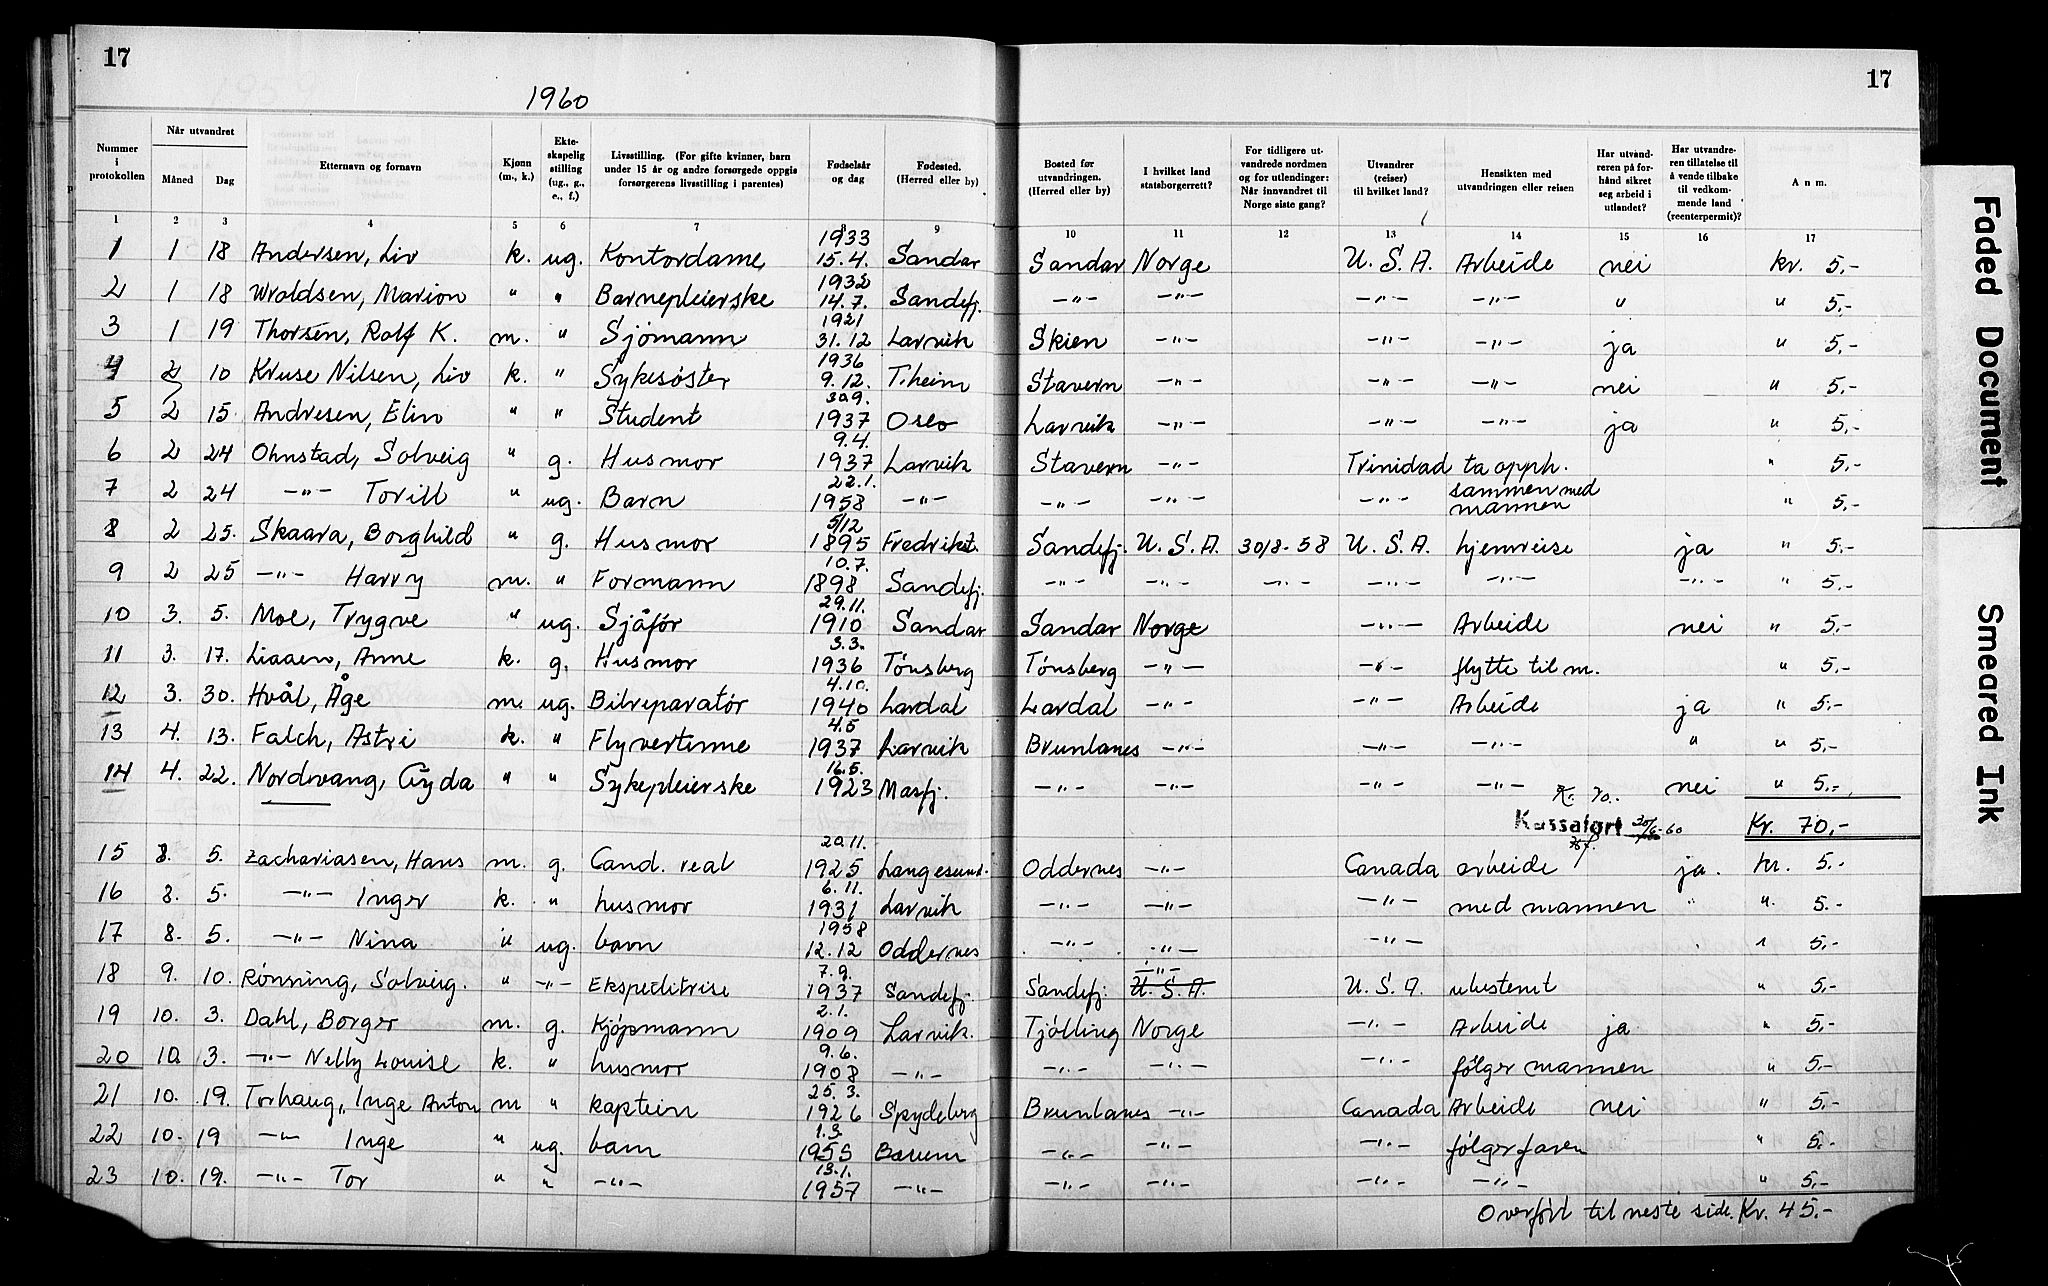 17
17
1960
Nummer i protokollen | Når utvandret | Etternavn og fornavn | Kjønn (m., k.) | Ekteskapelig stilling (ug., g., e., f.) | Livsstilling. (For gifte kvinner, barn under 15 år og andre forsørgede oppgis forsørgerens livsstilling i parentes) | Fødselsår og dag | Fødested. (Herred eller by) | Bosted før utvandringen. (Herred eller by) | I hvilket land statsborgerrett? | For tidligere utvandrede nordmen og for utlendinger: Når innvandret til Norge siste gang? | Utvandrer (reiser) til hvilket land? | Hensikten med utvandringen eller reisen | Har utvandreren på forhånd sikret seg arbeid i utlandet? | Har utvandreren tillatelse til å vende tilbake til vedkommende land (reenterpermit)? | Anm.
Måned | Dag
1 2 3 4 5 6 7 8 9 10 11 12 13 14 15 16 17
1 1 18 Andersen, Liv k. ug. Kontordame 1933 15.4. Sandar Sandar Norge U.S.A. Arbeide nei kr. 5,-
2 1 18 Wroldsen, Marion " " Barnepleierske 1932 14.7. Sandefj. -"- -"- -"- -"- " " 5,-
3 1 19 Thorsen, Rolf K. m. " Sjømann 1921 31.12 Larvik Skien -"- -"- -"- ja " 5,-
4 2 10 Kruse Nilsen, Liv k. " Sykesøster 1936 9.12. T.heim Stavern -"- -"- -"- nei " 5,-
5 2 15. Andresen, Elin " " Student 30.9. 1937 Oslo Larvik -"- -"- -"- ja " 5,-
6 2 24 Ohnstad, Solveig " g. Husmor 9.4. 1937 Larvik Stavern -"- Trinidad ta opph. " 5,-
7 2 24 -"- Torill " ug. Barn 22.1. 1958 -"- -"- -"- -"- sammen med mannen " 5,-
8 2 25. Skaara, Borghild " g. Husmor 5/12 1895 Fredrikst. Sandefj. U.S.A. 30/8-58 U.S.A. hjemreise ja " 5,-
9 2 25 -"- Harry m. " Formann 10.7. 1898 Sandefj. -"- -"- -"- -"- -"- -"- " 5,-
10 3. 5. Moe, Trygve " ug. Sjåfør 29.11. 1910 Sandar Sandar Norge -"- Arbeide nei " 5,-
11 3. 17. Liaaen, Anne k. g. Husmor 3.3. 1936 Tønsberg Tønsberg -"- -"- flytte til m. " 5,-
12 3. 30. Hvål, Åge m. ug. Bilreparatør 4.10. 1940 Lardal Lardal -"- -"- Arbeide ja " 5.-
13 4. 13. Falch, Astri k. " Flyvertinne 4.5 1937 Larvik Brunlanes -"- -"- -"- " " 5,-
14 4. 22. Nordvang, Gyda " " Sykepleierske 16.5. 1923 Masfj. -"- -"- -"- -"- nei " 5,-
Kr. 70.
Kassaført 30/6-60 Kr. 70,-
15 8. 5. Zachariasen, Hans m. g. Cand. real 20.11. 1925 Langesund. Oddernes -"- Canada arbeide ja. kr. 5,-
16 8. 5. -"- Inger k. " husmor 6.11. 1931 Larvik -"- -"- -"- med mannen " ". 5.-
17 8. 5. -"- Nina " ug. barn 1958 12.12 Oddernes -"- -"- -"- " 5,-
18 9. 10. Rønning, Solveig. " -"- Ekspeditrise 7.9. 1937 Sandefj. Sandefj. -"- U.S.A. U.S.A. ubestemt " 5,-
19 10. 3. Dahl, Borger m. g. Kjøpmann 2.1. 1909 Larvik. Tjølling Norge -"- Arbeide ja " 5,-
20 10. 3. -"- Nelly Louise k. " husmor 9.6. 1908 -"- -"- -"- -"- følger mannen " 5,-
21 10. 19. Torhaug, Inge Anton m " kaptein 25.3. 1926 Spydeberg Brunlanes -"- Canada Arbeide nei " 5,-
22 10. 19 -"- Inge " ug. barn 1.3. 1955 Bærum -"- -"- -"- følger faren " 5,-
23 10. 19. -"- Tor " " -"- 13.1. 1957 -"- -"- -"- -"- -"- " 5,-
Overført til neste side. Kr. 45.-
Faded Document
Smeared Ink